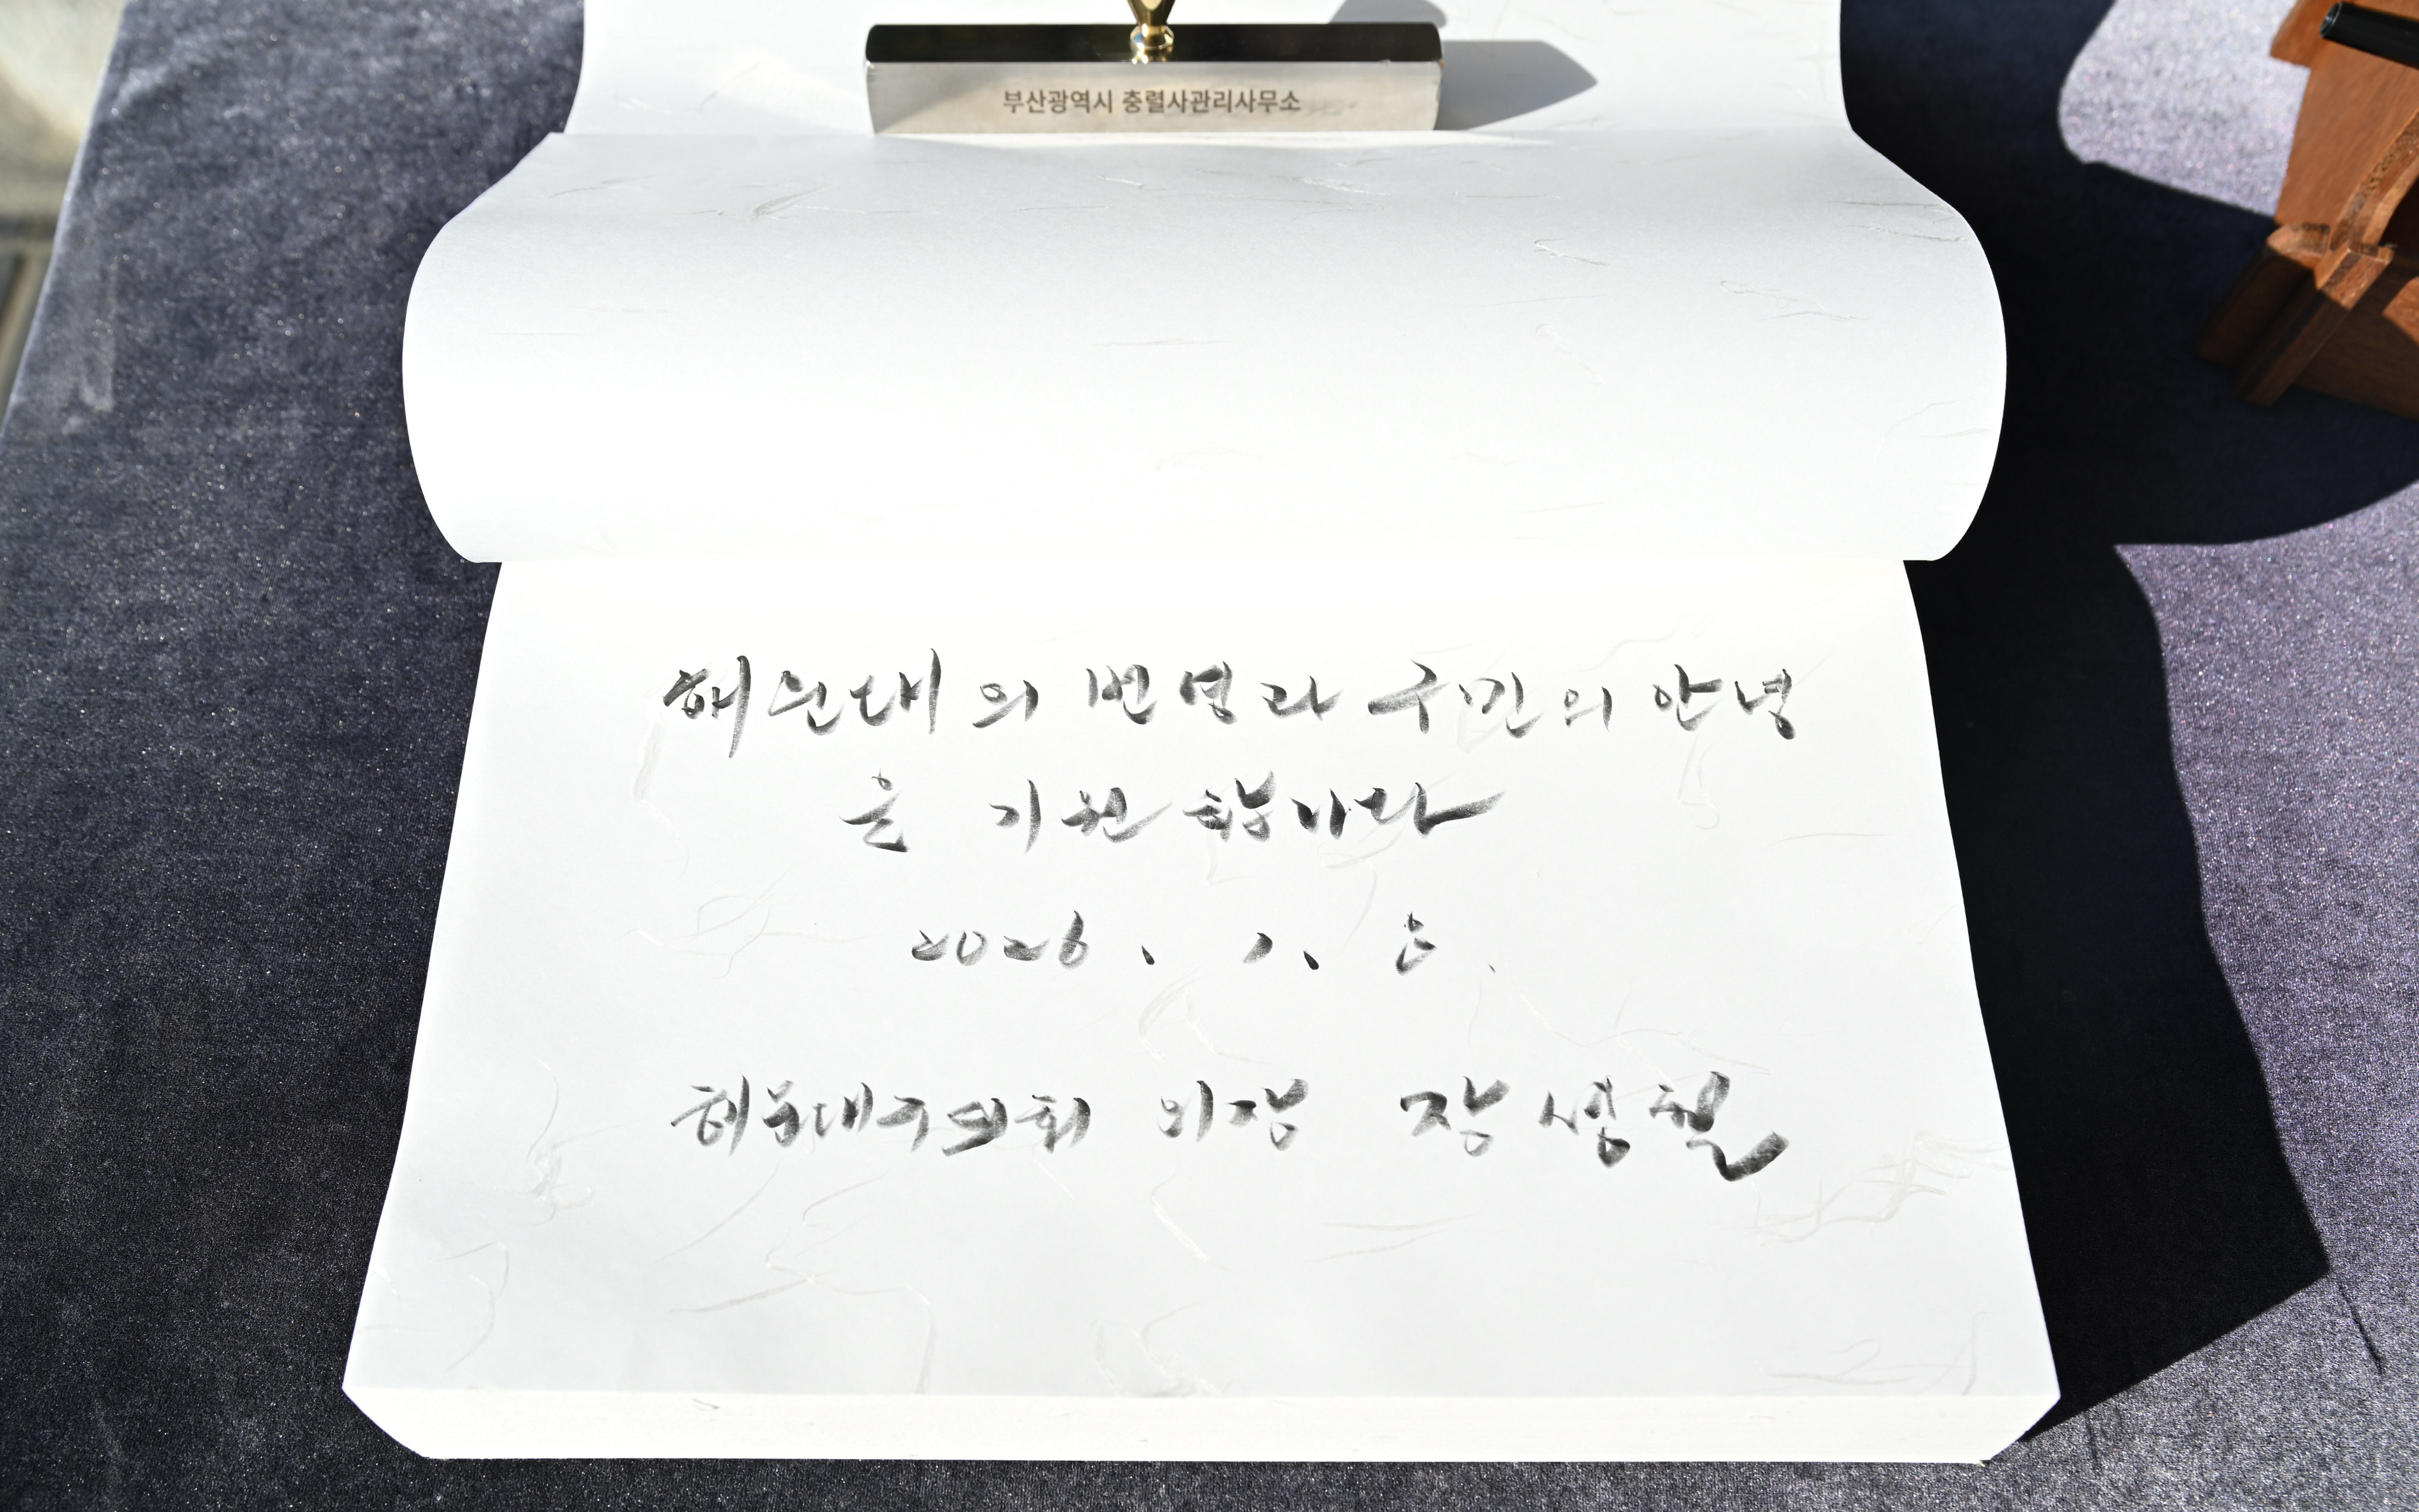 부산광역시 충렬사관리사무소
해운대의 번영과 구민의 안녕
을 기원합니다
2026. 1. 2.
해운대구의회 의장 장성철